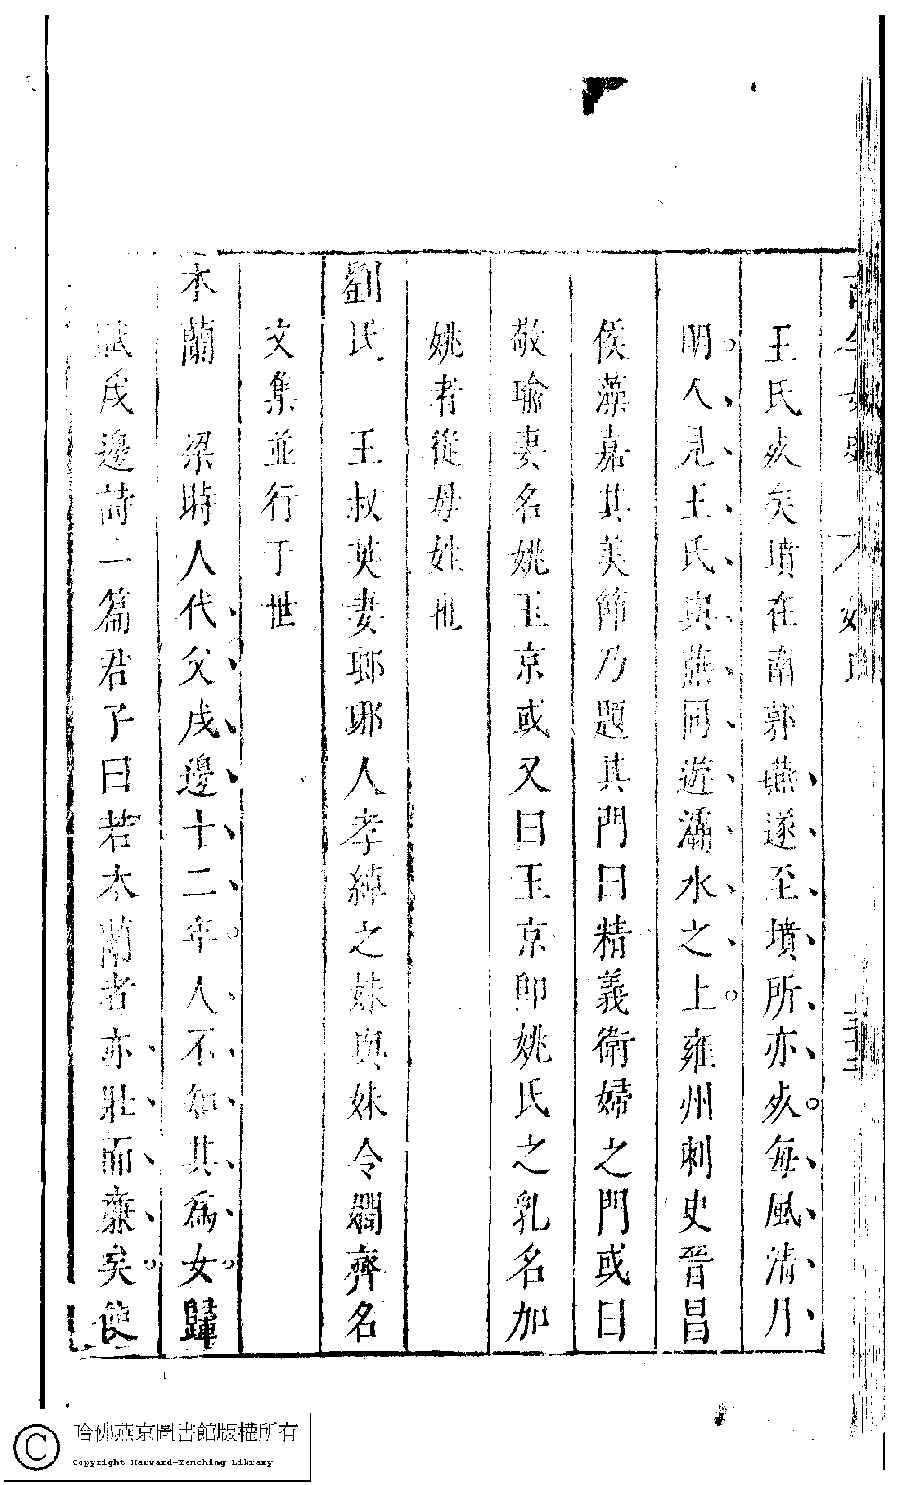 古今女史
王氏死矣墳在南郭燕遂至墳所亦死每風清月
明人見王氏與燕同遊灞水之上雍州刺史晉昌
侯藻嘉其美節乃題其門曰精義衛婦之門或曰
敬瑜妻名姚玉京或又曰玉京即姚氏之乳名加
姚者從母姓也
劉氏 王叔英妻瑯琊人孝綽之妹與妹令嫺齊名
文集並行于世
木蘭 梁時人代父戍邊十二年人不知其為女歸
賦戍邊詩一篇君子曰若木蘭者亦壯而廉矣使
哈佛燕京圖書館版權所有
Copyright Harvard-Yenching Library